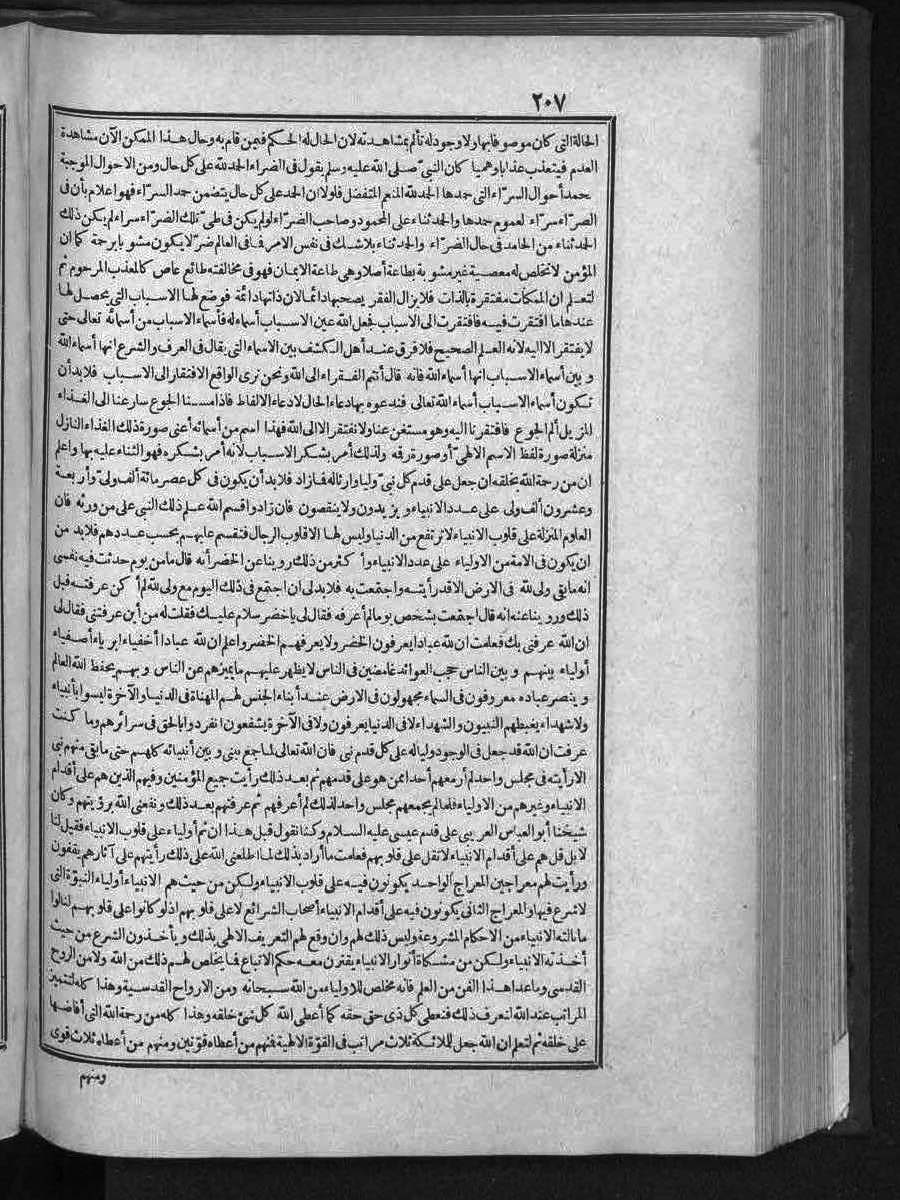 ٢٠٧
الحالة التى كان موصوفا بها ولا وجود له تألم بمشاهدته لان الحال له الحكم فيمن قام به وحال هذا الممكن الآن مشاهدة
العدم فيتعذب عذابا وهميا كان النبى صلى الله عليه وسلم يقول فى الضراء الحمد لله على كل حال ومن الاحوال الموجبة
لحمد أحوال السرّاء التى حمدها الحمد لله المنعم المتفضل فلولا ان الحمد على كل حال يتضمن حمد السرّاء فهو اعلام بأن فى
الضرّاء سرّاء لعموم حمدها والحمد ثناء على المحمود وصاحب الضرّاء لو لم يكن فى طىّ تلك الضرّاء سراء لم يكن ذلك
الحمد ثناء من الحامد فى حال الضرّاء والحمد ثناء بلا شك فى نفس الامر فما فى العالم ضرّ لا يكون مشوبا برحمة كما ان
المؤمن لا تخلص له معصية غير مشوبة بطاعة أصلا وهى طاعة الايمان فهو فى مخالفته طائع عاص كالمعذب المرحوم ثم
لتعلم ان الممكنات مفتقرة بالذات فلا يزال الفقر يصحبها دائما لان ذاتها دائمة فوضع لها الاسباب التى يحصل لها
عندها ما افتقرت فيه فافتقرت الى الاسباب فجعل الله عين الاسباب أسماء له فأسماء الاسباب من أسمائه تعالى حتى
لا يفتقر الا اليه لانه العلم الصحيح فلا فرق عند أهل الكشف بين الاسماء التى يقال فى العرف والشرع انها أسماء الله
و بين أسماء الاسباب انها أسماء الله فانه قال أنتم الفقراء الى الله ونحن نرى الواقع الافتقار الى الاسباب فلا بد أن
تكون أسماء الاسباب أسماء الله تعالى فندعوه بها دعاء الحال لا دعاء الالفاظ فاذا مسنا الجوع سارعنا الى الغذاء
المزيل ألم الجوع فافتقرنا اليه وهو مستغن عنا ولا نفتقر الا الى الله فهذا اسم من أسمائه أعنى صورة ذلك الغذاء النازل
منزلة صورة لفظ الاسم الالهىّ أو صورة رقمه ولذلك أمر بشكر الاسباب لانه أمر بشكره فهو الثناء عليه بها واعلم
ان من رحمة الله بخلقه ان جعل على قدم كل نبىّ وليا وارثا له فما زاد فلا بد أن يكون فى كل عصر مائة ألف ولىّ وأربعة
وعشرون ألف ولى على عدد الانبياء و يزيدون ولا ينقصون فان زادوا قسم الله علم ذلك النبى على من ورثه فان
العلوم المنزلة على قلوب الانبياء لا ترتفع من الدنيا وليس لها الا قلوب الرجال فتقسم عليهم بحسب عددهم فلا بد من
ان يكون فى الامة من الاولياء على عدد الانبياء وأكثر من ذلك روينا عن الخضر أنه قال ما من يوم حدثت فيه نفسى
انه ما بقى ولى لله فى الارض الا قد رأيته واجتمعت به فلا بد لى ان اجتمع فى ذلك اليوم مع ولى لله لم أكن عرفته قبل
ذلك وروينا عنه انه قال اجتمعت بشخص يوما لم أعرفه فقال لى يا خضر سلام عليك فقلت له من أين عرفتنى فقال لى
ان الله عرفنى بك فعلمت ان لله عبادا يعرفون الخضر ولا يعرفهم الخضر واعلم ان لله عبادا أخفياء ابرياء أصفياء
أولياء بينهم و بين الناس حجب العوائد غامضين فى الناس لا يظهر عليهم ما يميزهم عن الناس وبهم يحفظ الله العالم
و ينصر عباده معروفون فى السماء مجهولون فى الارض عند أبناء الجنس لهم المهناة فى الدنيا والآخرة ليسوا بأنبياء
ولا شهداء يغبطهم النبيون والشهداء لا فى الدنيا يعرفون ولا فى الآخرة يشفعون انفردوا بالحق فى سرائرهم وما كنت
عرفت ان الله قد جعل فى الوجود وليا له على كل قدم نبى فان الله تعالى لما جمع بينى و بين أنبيائه كلهم حتى ما بقى منهم نبى
الا رأيته فى مجلس واحد لم أر معهم أحدا ممن هو على قدمهم ثم بعد ذلك رأيت جميع المؤمنين وفيهم الذين هم على أقدام
الانبياء وغيرهم من الاولياء فلما لم يجمعهم مجلس واحد لذلك لم أعرفهم ثم عرفتهم بعد ذلك ونفعنى الله برؤيتهم وكان
شيخنا أبو العباس العريبى على قدم عيسى عليه السلام وكنا نقول قبل هذا ان ثم أولياء على قلوب الانبياء فقيل لنا
لا بل قل هم على أقدام الانبياء لا تقل على قلوبهم فعلمت ما أراد بذلك لما اطلعنى الله على ذلك رأيتهم على آثارهم يقفون
ورأيت لهم معراجين المعراج الواحد يكونون فيه على قلوب الانبياء ولكن من حيث هم الانبياء أولياء النبوّة التى
لا شرع فيها والمعراج الثانى يكونون فيه على أقدام الانبياء أصحاب الشرائع لا على قلوبهم اذ لو كانوا على قلوبهم لنالوا
ما نالته الانبياء من الاحكام المشروعة وليس ذلك لهم وان وقع لهم التعريف الالهى بذلك ويأخذون الشرع من حيث
أخذته الانبياء ولكن من مشكاة أنوار الانبياء يقترن معه حكم الاتباع فما يخلص لهم ذلك من الله ولا من الروح
القدسى وما عدا هذا الفن من العلم فانه مخلص للاولياء من الله سبحانه ومن الارواح القدسية وهذا كله لتتميز
المراتب عند الله لنعرف ذلك فنعطى كل ذى حق حقه كما أعطى الله كل شئ خلقه وهذا كله من رحمة الله التى أفاضها
على خلقه ثم لتعلم ان الله جعل للملائكة ثلاث مراتب فى القوّة الالهية فمنهم من أعطاه قوّتين ومنهم من أعطاه ثلاث قوى
ومنهم